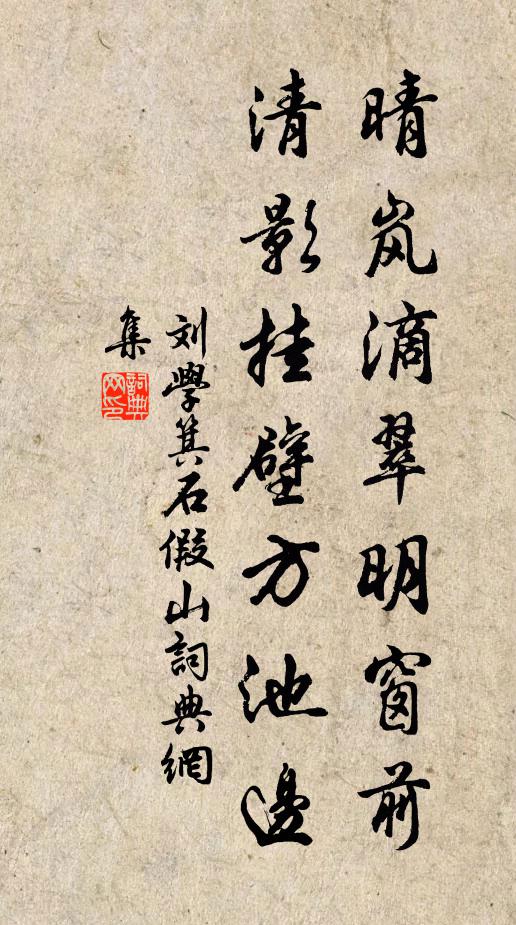 晴岚滴翠明窗前
清影挂壁方池邊
刘學箕石假山詞典網
集
詞典
网印